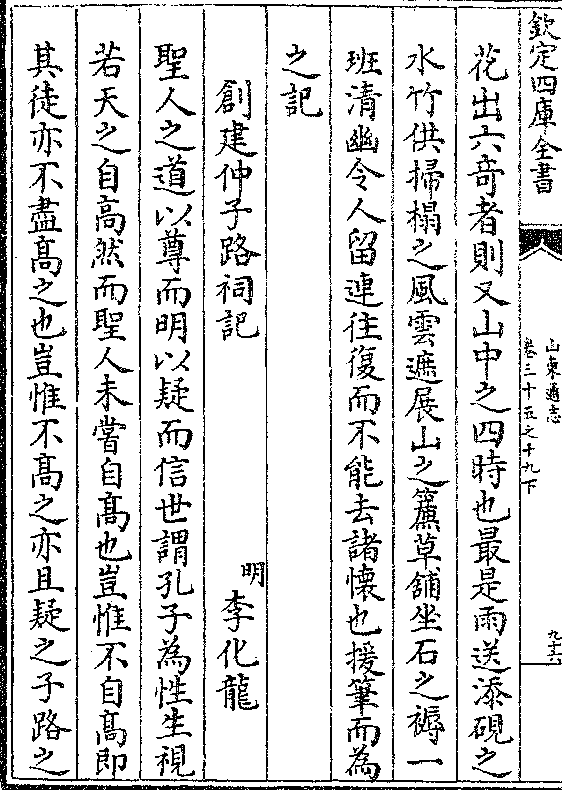 欽定四庫全書
山東通志
卷三十五之十九下
九十六
花出六奇者則又山中之四時也最是雨送添硯之
水竹供掃榻之風雲遮展山之簾草舖坐石之褥一
班清幽令人留連往復而不能去諸懷也援筆而為
之記
創建仲子路祠記
明李化龍
聖人之道以尊而明以疑而信世謂孔子為性生視
若天之自高然而聖人未嘗自髙也豈惟不自髙即
其徒亦不盡髙之也豈惟不髙之亦且疑之子路之